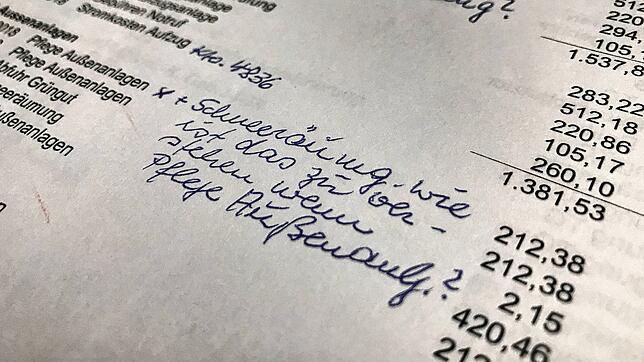 Notruf
Stromkosten Aufzug Kto. 4836
Aussenanlagen
2018 Pflege Außenanlagen
Pflege Außenanlagen
Abfuhr Grüngut
eeräumung
ußenanlagen
x + Schneeräumung. wie
ist das zu ver-
stehen wenn
Pflege Außenanlg.?
512
220
294,
105,
1.537,8
283,22
512,18
220,86
105,17
260,10
1.381,53
212,38
212,38
2,15
420,46
212